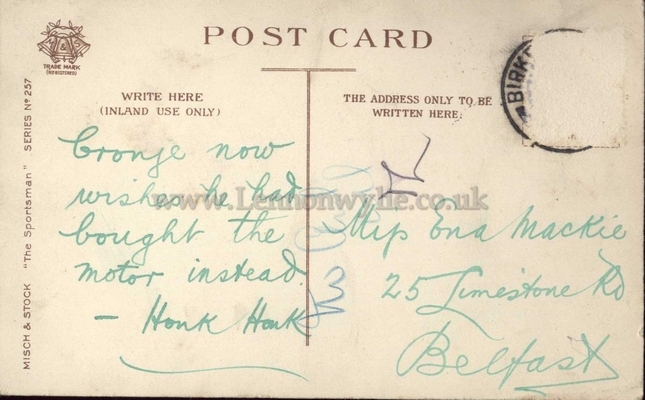 POST CARD
M & S
TRADE MARK
(REGISTERED)
WRITE HERE
(INLAND USE ONLY)
THE ADDRESS ONLY TO BE
WRITTEN HERE.
BIRK
MISCH & STOCK "The Sportsman" SERIES Nº 257
Cronje now
wishes he had
bought the
motor instead.
- Honk Honk
Miss Ena Mackie
25 Limestone Rd
Belfast
www.Lennonwylie.co.uk